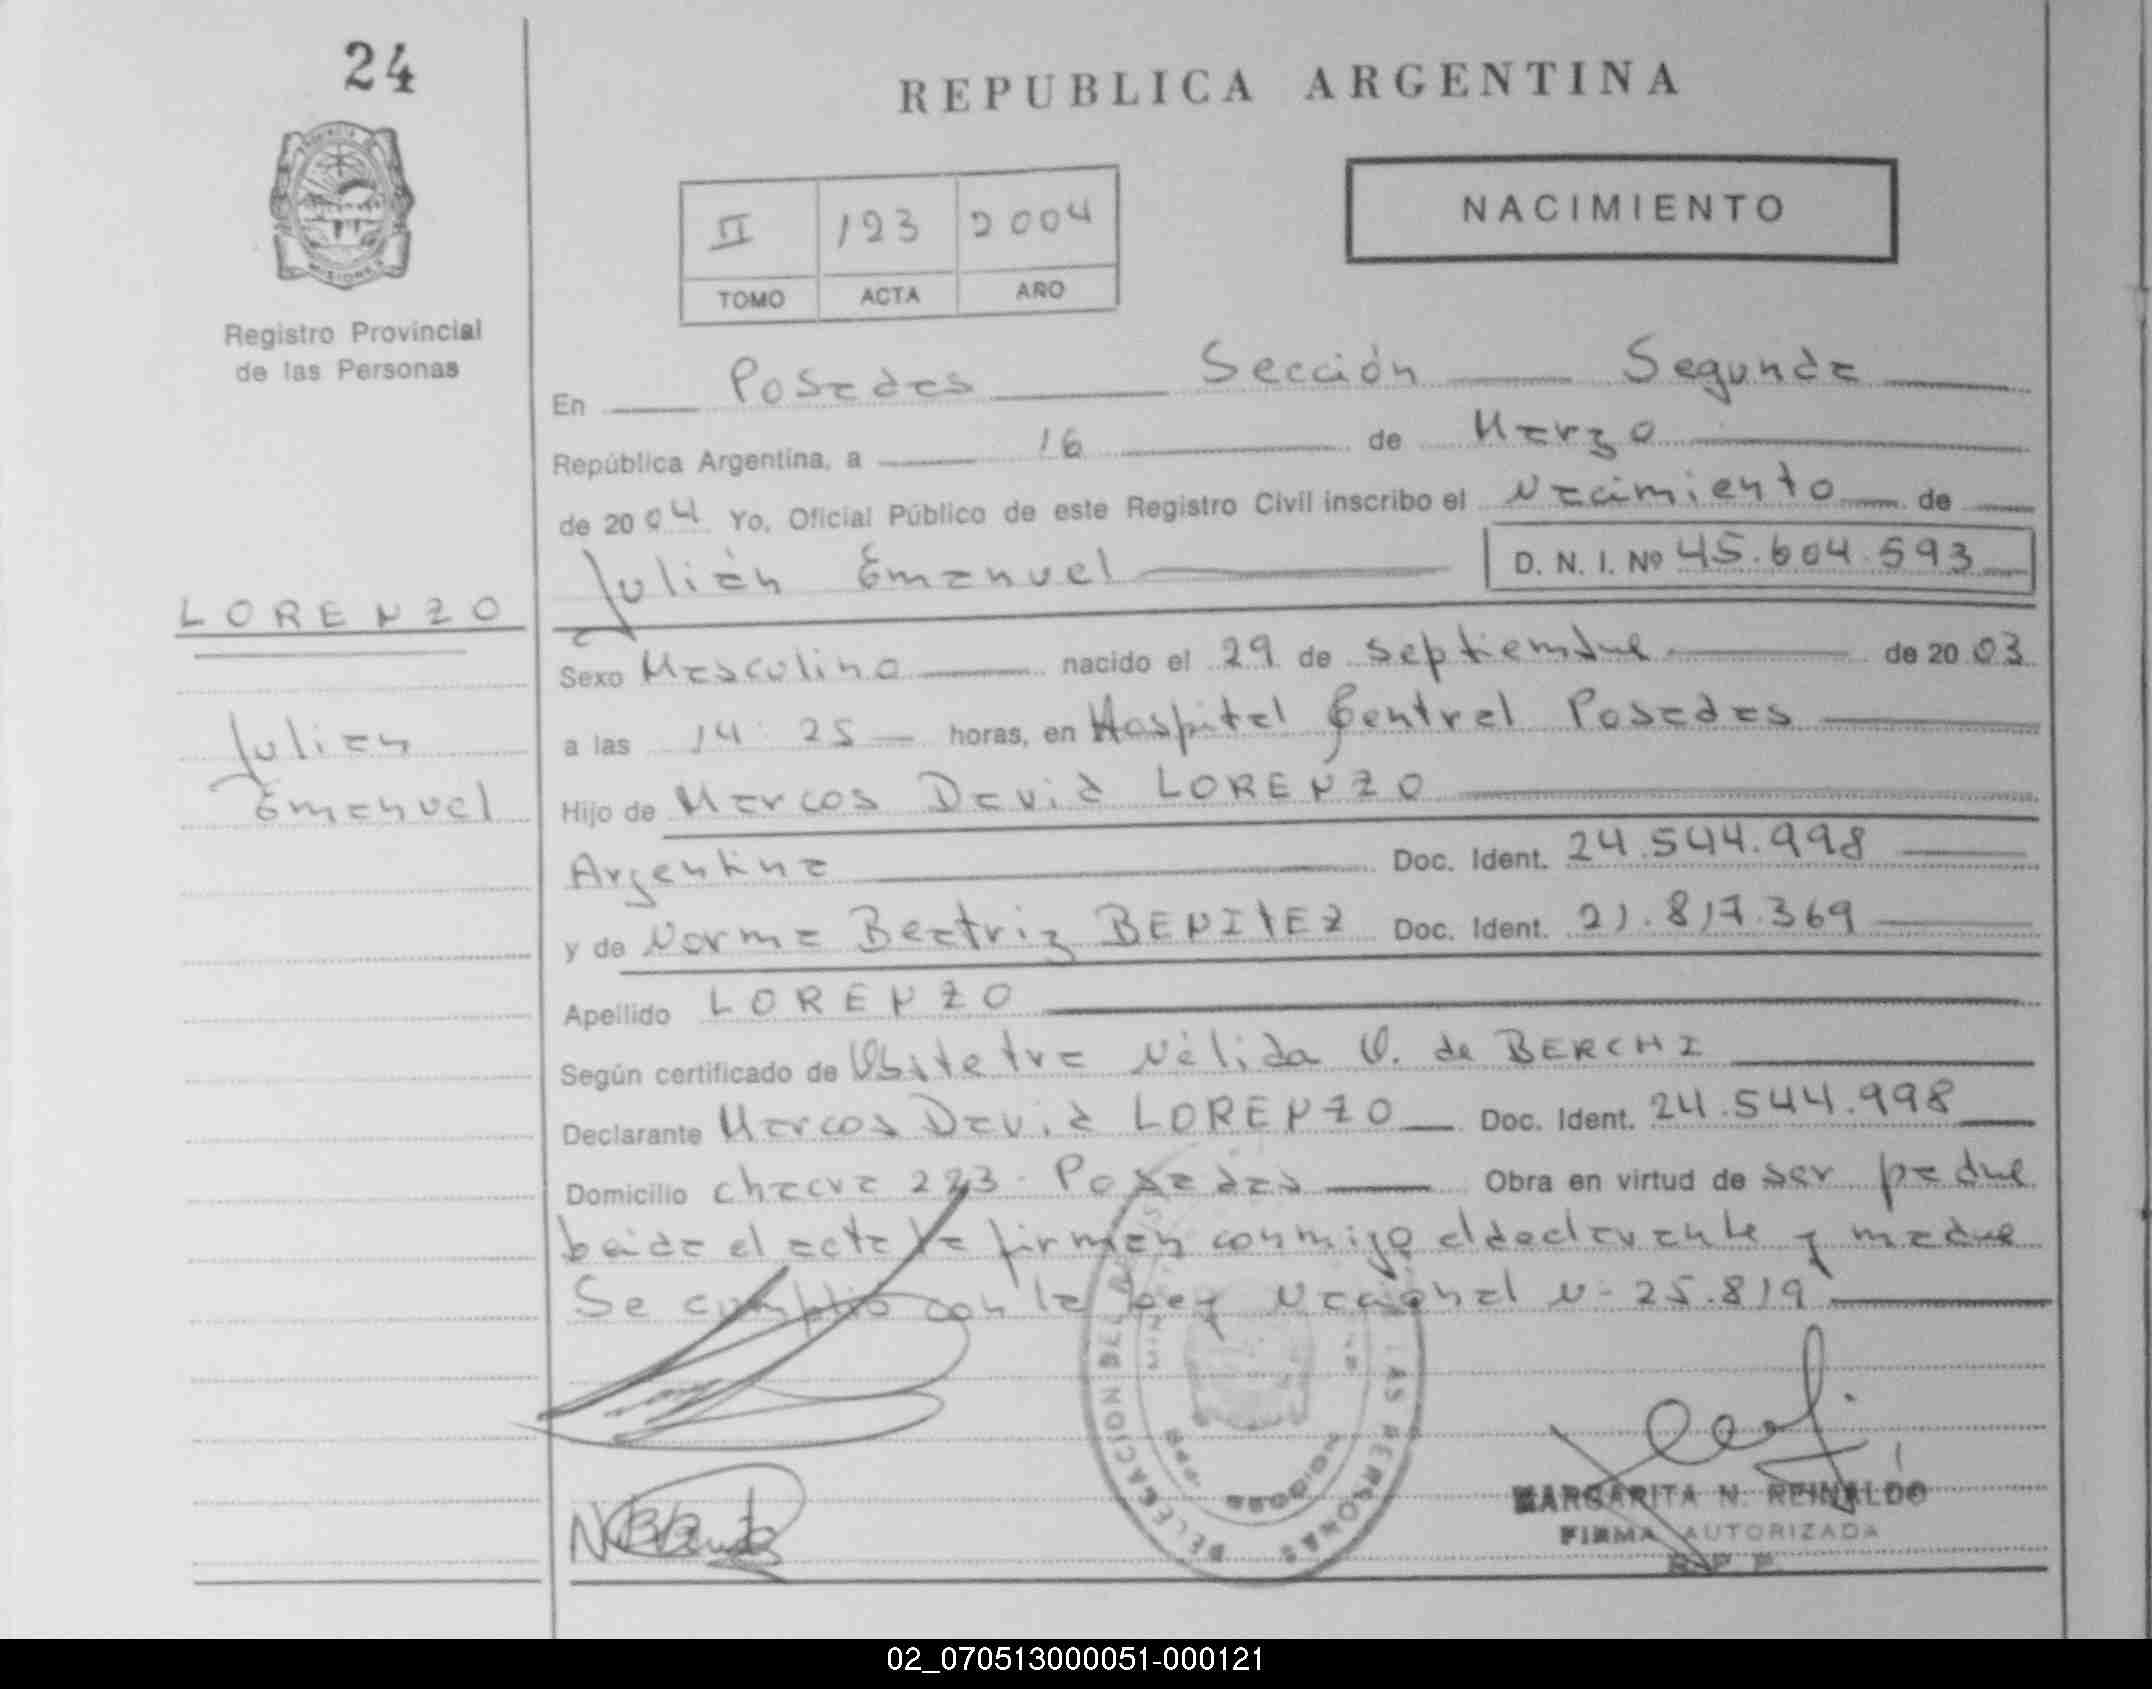 24
REPUBLICA ARGENTINA
II 123 2004
TOMO ACTA AÑO
NACIMIENTO
MISIONES
Registro Provincial
de las Personas
En Posadas Sección Segunda
República Argentina, a 16 de Marzo
de 2004 Yo, Oficial Público de este Registro Civil inscribo el Nacimiento de
Julián Emanuel D. N. I. Nº 45.604.593
LORENZO
Sexo Masculino nacido el 29 de septiembre de 2003
Julián
a las 14:25 horas, en Hospital Central Posadas
Emanuel
Hijo de Marcos David LORENZO
Argentina Doc. Ident. 24.544.998
y de Norma Beatriz BENITEZ Doc. Ident. 21.817.369
Apellido LORENZO
Según certificado de Obstetra Nélida O. de BERCHI
Declarante Marcos David LORENZO Doc. Ident. 24.544.998
Domicilio chacra 223 - Posadas Obra en virtud de ser padre
Leida el acta la firman conmigo el declarante y madre
Se cumplió con la Ley Nacional N- 25.819
DELEGACION DEL LAS PERSONAS
MARGARITA N. REINALDO
FIRMA AUTORIZADA
R. P. P.
02_070513000051-000121